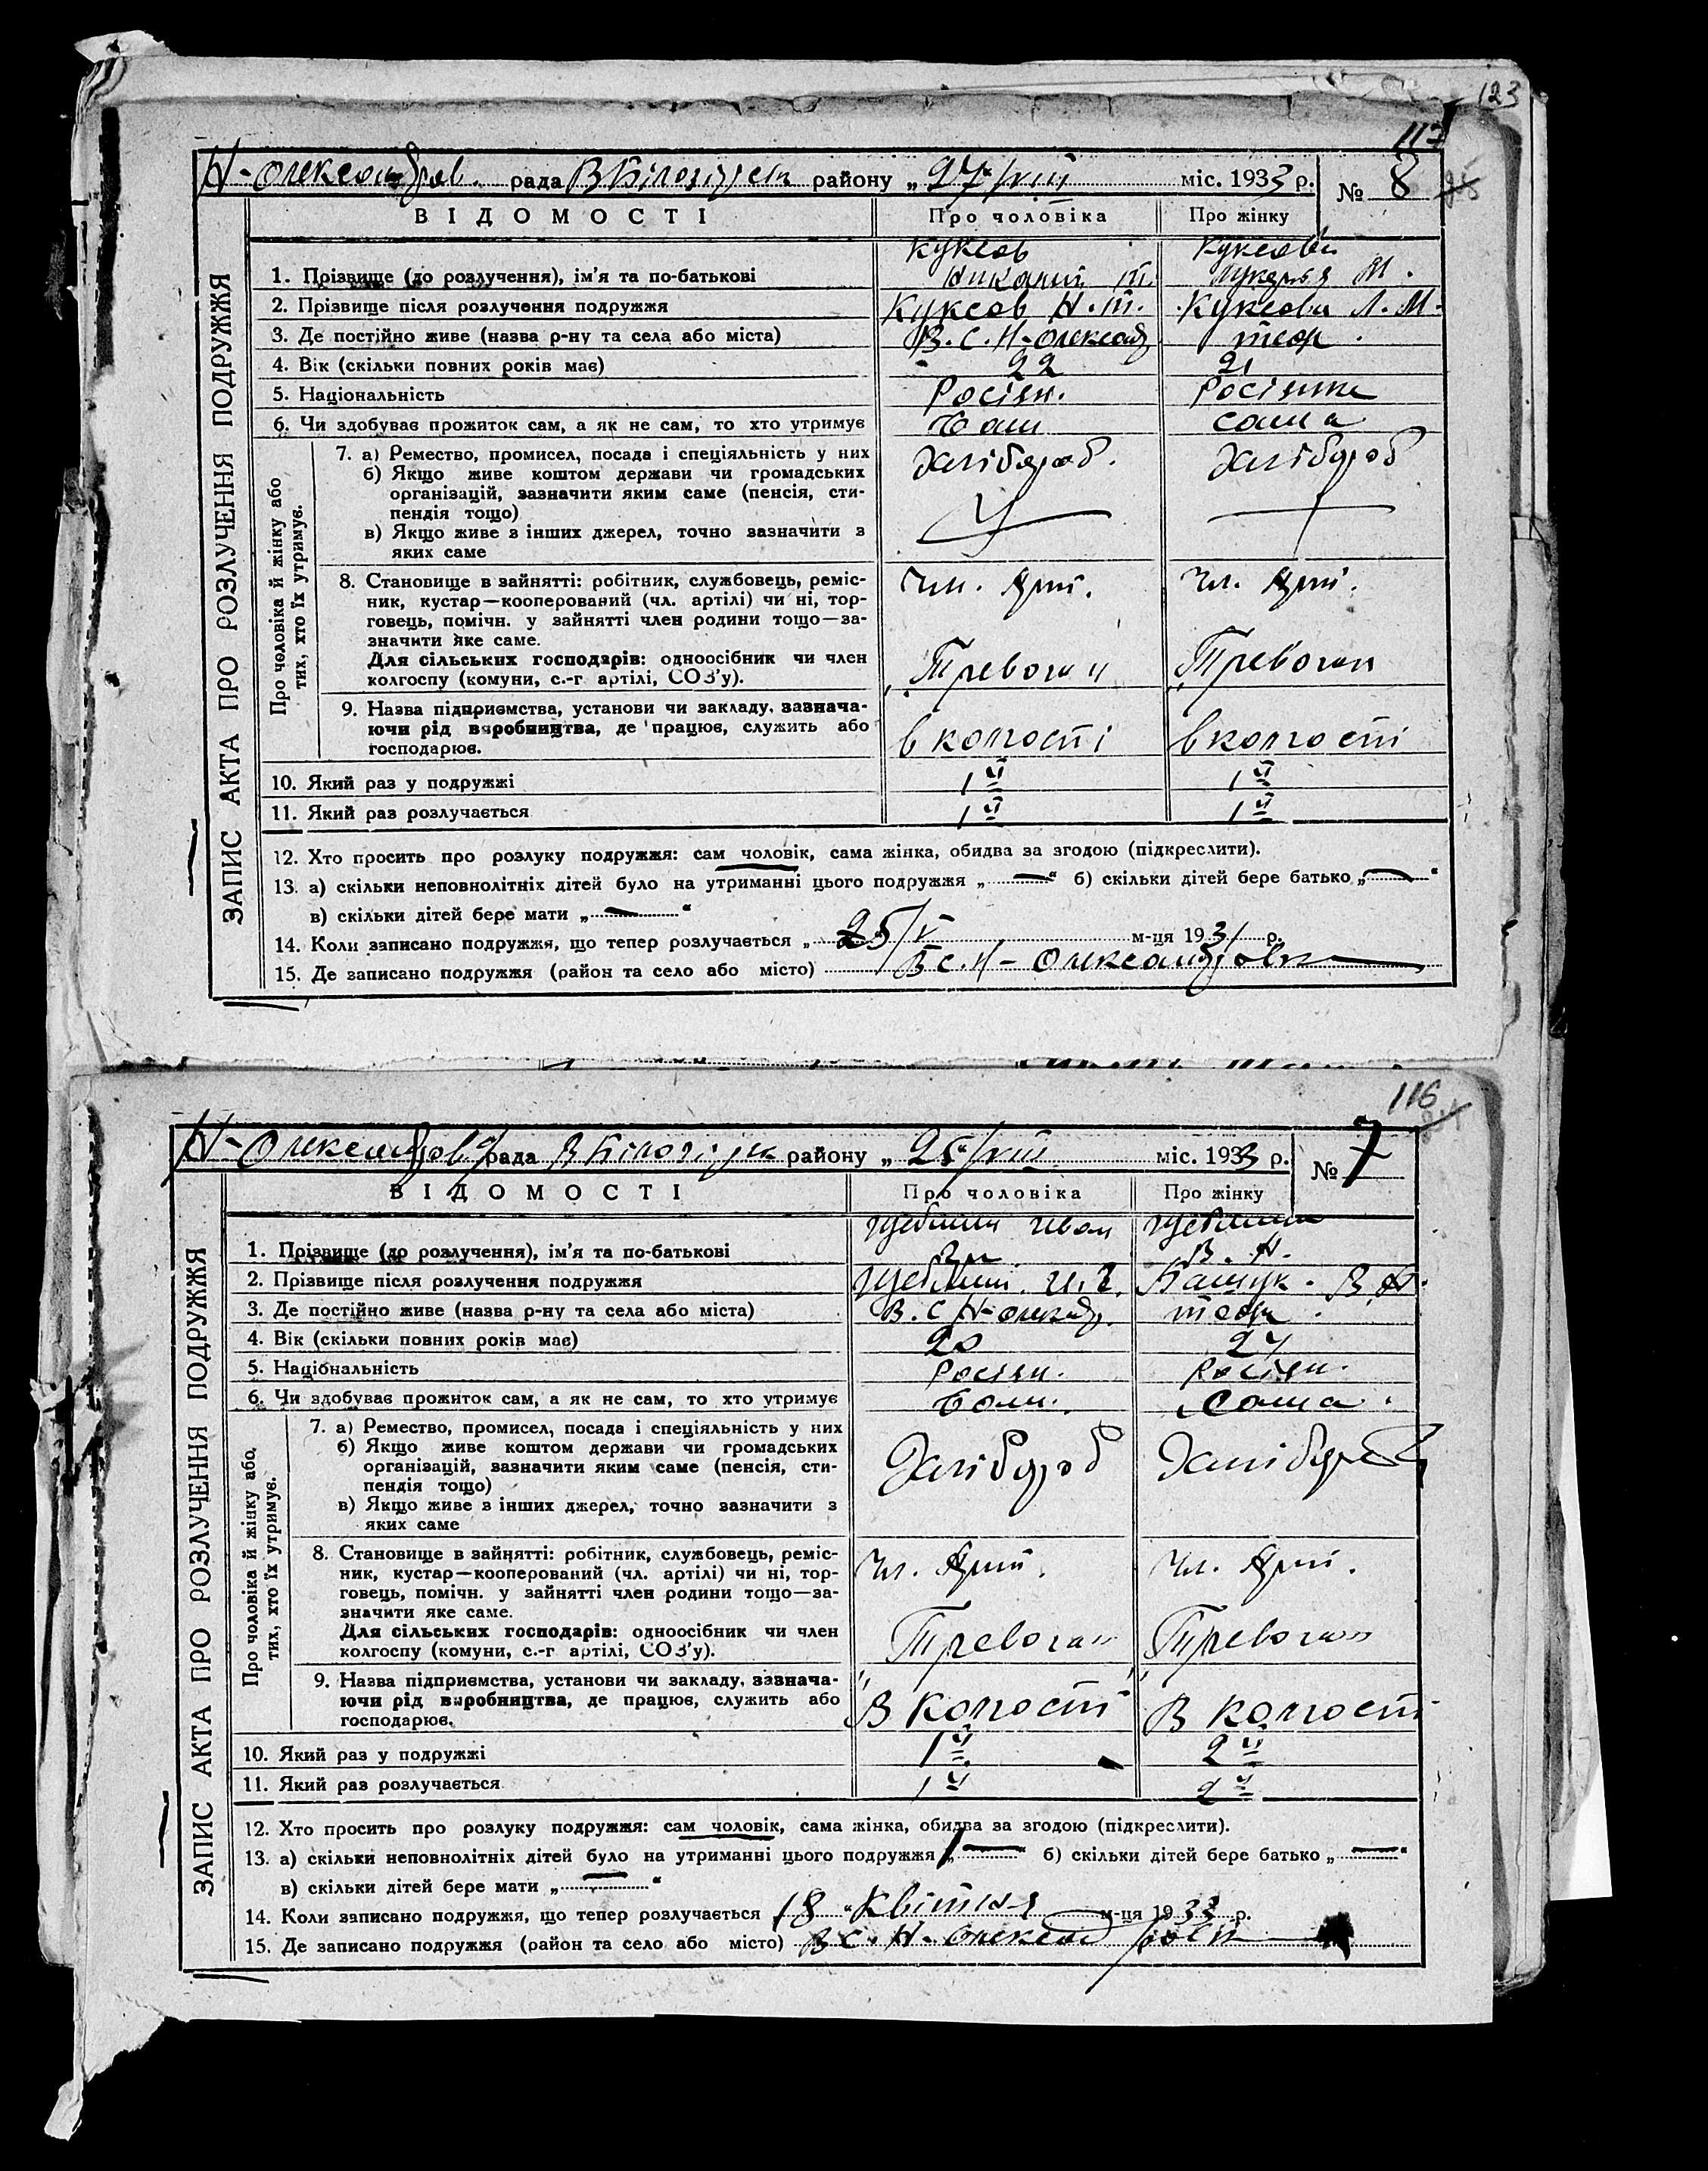 123
117
Н-Олександров. рада В Білозірськ району „27/VIII міс. 1933 р. № 8
ВІДОМОСТІ Про чоловіка Про жінку
ЗАПИС АКТА ПРО РОЗЛУЧЕННЯ ПОДРУЖЖЯ
Куксов Куксова
1. Прізвище (до розлучення), ім'я та по-батькові Т. М.
2. Прізвище після розлучення подружжя Куксов Н. Т. Куксова Л. М.
3. Де постійно живе (назва р-ну та села або міста) В. С. Н-Олександ
4. Вік (скільки повних років має) 22 21
5. Національність Росіян. Росіянка
6. Чи здобуває прожиток сам, а як не сам, то хто утримує Сам Сама
Про чоловіка й жінку або
тих, хто їх утримує.
7. а) Ремество, промисел, посада і спеціяльність у них Хлібороб. Хлібороб
б) Якщо живе коштом держави чи громадських
організацій, зазначити яким саме (пенсія, сти-
пендія тощо)
в) Якщо живе з інших джерел, точно зазначити з
яких саме
8. Становище в зайнятті: робітник, службовець, реміс- Чл. Арт. Чл. Арт.
ник, кустар—кооперований (чл. артілі) чи ні, тор-
говець, помічн. у зайнятті член родини тощо—за-
значити яке саме.
Для сільських господарів: одноосібник чи член
колгоспу (комуни, с.-г артілі, СОЗ'у).
9. Назва підприємства, установи чи закладу, зазнача-
ючи рід виробництва, де працює, служить або в колгоспі в колгоспі
господарює.
10. Який раз у подружжі 1й 1й
11. Який раз розлучається 1й 1й
12. Хто просить про розлуку подружжя: сам чоловік, сама жінка, обидва за згодою (підкреслити).
13. а) скільки неповнолітніх дітей було на утриманні цього подружжя „—“ б) скільки дітей бере батько „—“
в) скільки дітей бере мати „—“
14. Коли записано подружжя, що тепер розлучається „25/V м-ця 1931 р.
15. Де записано подружжя (район та село або місто) В с. Н-Олександровка
116
Н-Олександров рада району „25/VIII міс. 1933 р. № 7
ВІДОМОСТІ Про чоловіка Про жінку
ЗАПИС АКТА ПРО РОЗЛУЧЕННЯ ПОДРУЖЖЯ
1. Прізвище (до розлучення), ім'я та по-батькові В. Н.
2. Прізвище після розлучення подружжя
3. Де постійно живе (назва р-ну та села або міста) В. С Н-Олександ.
4. Вік (скільки повних років має) 20 24
5. Національність Росіян. Росіян.
6. Чи здобуває прожиток сам, а як не сам, то хто утримує Сам. Сама.
Про чоловіка й жінку або
тих, хто їх утримує.
7. а) Ремество, промисел, посада і спеціяльність у них Хлібороб Хлібороб
б) Якщо живе коштом держави чи громадських
організацій, зазначити яким саме (пенсія, сти-
пендія тощо)
в) Якщо живе з інших джерел, точно зазначити з
яких саме
8. Становище в зайнятті: робітник, службовець, реміс- Чл. Арт. Чл. Арт.
ник, кустар—кооперований (чл. артілі) чи ні, тор-
говець, помічн. у зайнятті член родини тощо—за-
значити яке саме.
Для сільських господарів: одноосібник чи член
колгоспу (комуни, с.-г артілі, СОЗ'у).
9. Назва підприємства, установи чи закладу, зазнача-
ючи рід виробництва, де працює, служить або В колгоспі В колгоспі
господарює.
10. Який раз у подружжі 1й 2й
11. Який раз розлучається 1й 2й
12. Хто просить про розлуку подружжя: сам чоловік, сама жінка, обидва за згодою (підкреслити).
13. а) скільки неповнолітніх дітей було на утриманні цього подружжя „—“ б) скільки дітей бере батько „—“
в) скільки дітей бере мати „—“
14. Коли записано подружжя, що тепер розлучається 18 “ Квітня м-ця 1933 р.
15. Де записано подружжя (район та село або місто) В с. Н-Олександровк